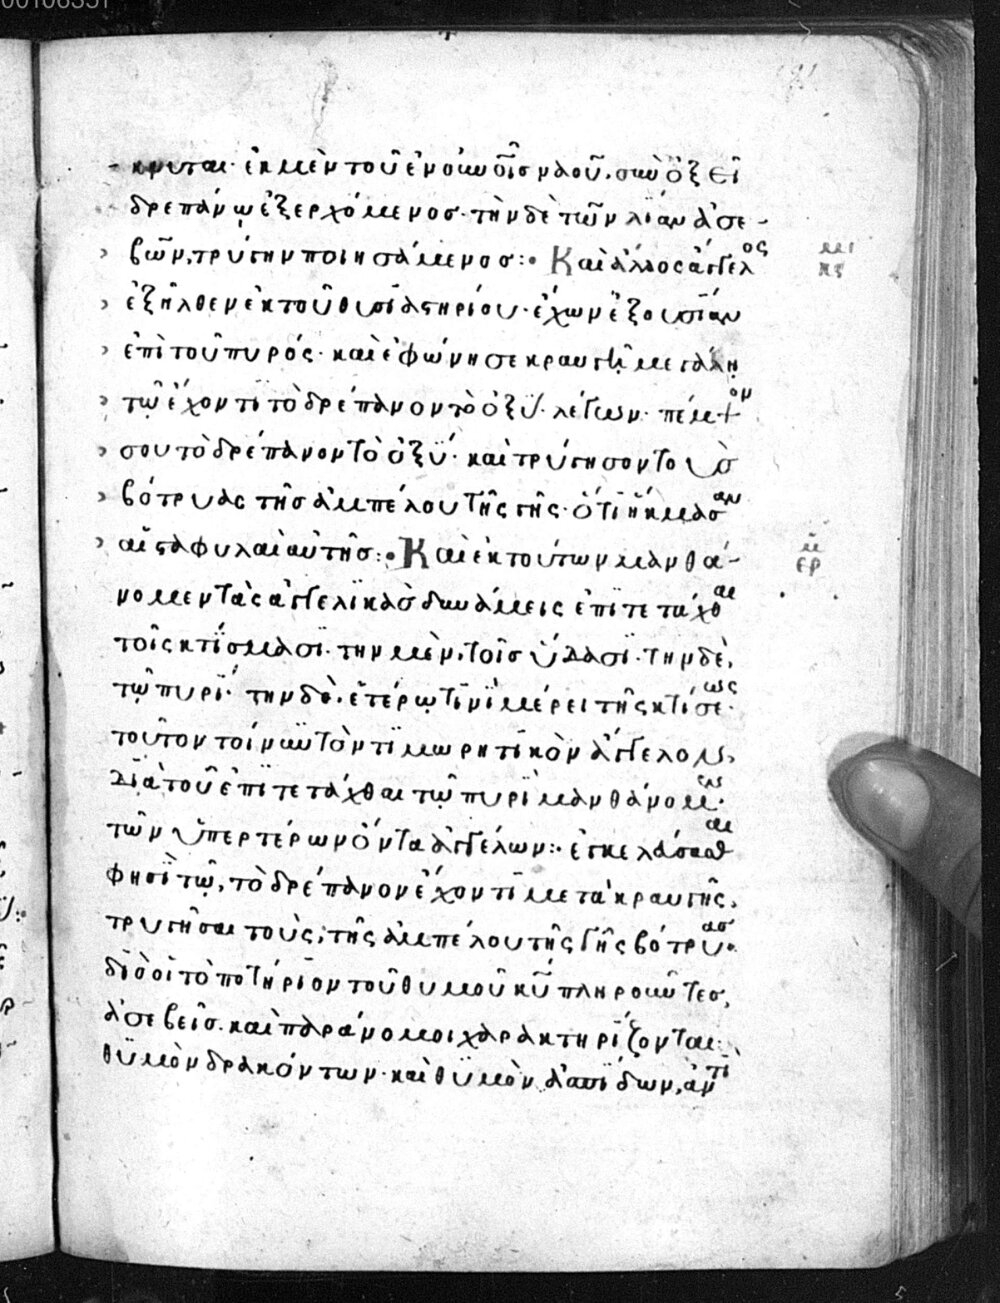 κνυται· ἐκ μὲν τοῦ ἐν οὐνοῖς ναοῦ, σὺν ὀξεῖ
δρεπάνῳ ἐξερχόμενος· τὴν δὲ τῶν λίαν ἀσε-
βῶν, τρύγην ποιησάμενος:· Καὶ ἄλλος ἄγγελος
ἐξῆλθεν ἐκ τοῦ θυσιαστηρίου· ἔχων ἐξουσίαν
ἐπὶ τοῦ πυρός· καὶ ἐφώνησε κραυγῇ μεγάλῃ
τῷ ἔχοντι τὸ δρέπανον τὸ ὀξύ· λέγων· πέμψον
σου τὸ δρέπανον τὸ ὀξύ· καὶ τρύγησον τοὺς
βότρυας τῆς ἀμπέλου τῆς γῆς· ὅτι ἤκμασαν
αἱ σταφυλαὶ αὐτῆς:· Καὶ ἐκ τούτων μανθά-
νομεν τὰς ἀγγελικὰς δυνάμεις ἐπιτετάχθαι
τοῖς κτίσμασι· τὴν μὲν, τοῖς ὕδασι· τὴν δὲ,
τῷ πυρί· τὴν δὲ, ἑτέρῳ τινὶ μέρει τῆς κτίσεως·
τοῦτον τοίνυν τὸν τιμωρητικὸν ἄγγελον,
διὰ τοῦ ἐπιτετάχθαι τῷ πυρὶ μανθάνομεν·
τῶν ὑπερτέρων ὄντα ἀγγέλων:· ἐγκελεύσασθαι
φησὶ τῷ, τὸ δρέπανον ἔχοντι μετὰ κραυγῆς,
τρυγῆσαι τοὺς, τῆς ἀμπέλου τῆς γῆς βότρυας·
δι' ὃ οἱ τὸ ποτήριον τοῦ θυμοῦ κυ πληροῦντες,
ἀσεβεῖς· καὶ παράνομοι χαρακτηρίζονται·
θυμὸν δρακόντων· καὶ θυμὸν ἀσπίδων, ἀντὶ